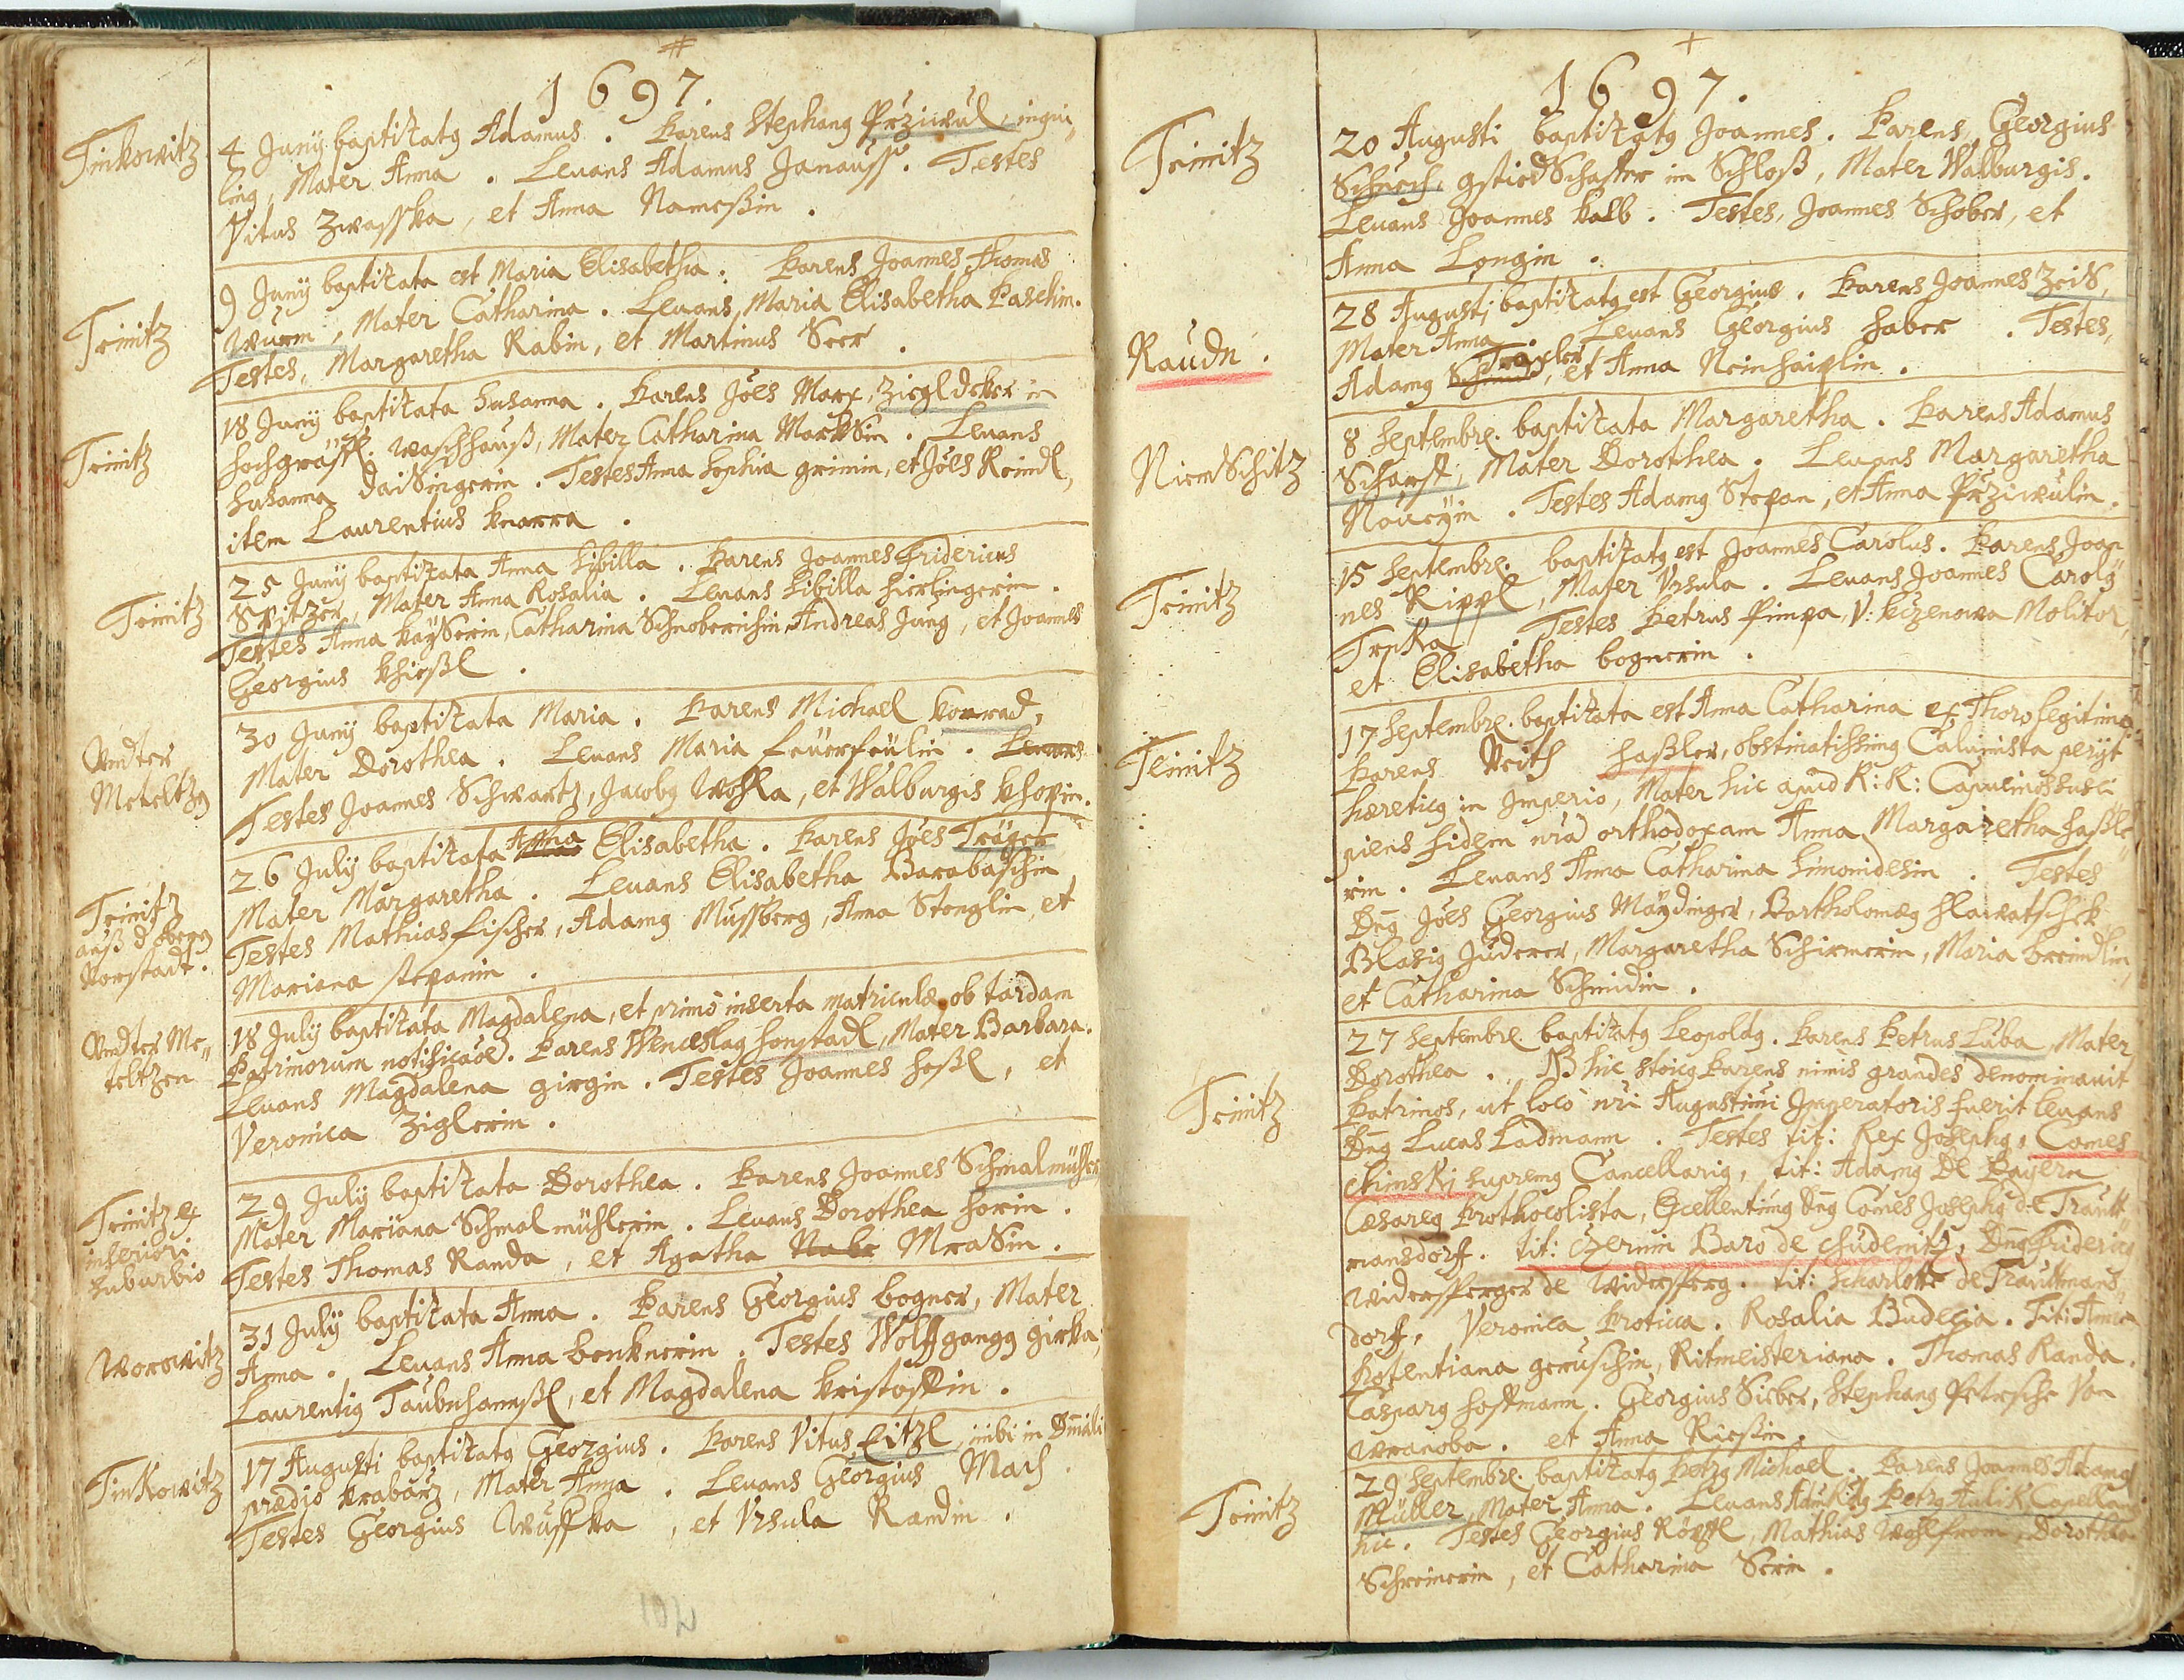 1697.
Tinkowitz
4 Junij baptizatq Adamus. Parens Stephanq Przucul, inqui„
linq, Mater Anna. Leuans Adamus Janauss. Testes
Vitus Zwasska, et Anna Nameßin.
Teinitz
9 Junij baptizata est Maria Elisabetha. Parens Joannes Thomas
Wurm, Mater Catharina. Leuans, Maria Elisabetha Paschin.
Testes, Margaretha Rabin, et Martinus Seer.
Teinitz
18 Junij baptizata Susanna. Parens Joēs Marx, Zigldeker in
hochgräffl. waschhauß, Mater Catharina MarkSin. Leuans
Susanna DaiSingerin. Testes Anna Sophia grimin, et Joēs Reindl,
item Laurentius Knorra.
Teinitz
25 Junij baptizata Anna Sibilla. Parens Joannes Fridericus
Spitzer, Mater Anna Rosalia. Leuans Sibilla hierlingerin.
Testes Anna KaySerin, Catharina Schnobernihin, Andreas Jung, et Joannes
Georgius Khießl.
Vndter
Meteltzn
30 Junij baptizata Maria. Parens Michael Konrad,
Mater Dorothea. Leuans Maria feuerfeulin. Leuans
Testes Joannes Schwartz, Jacobq Wohla, et Walburgis Khopin.
Teinitz
auß d obern
Vorstadt.
26 July baptizata Anna Elisabetha. Parens Joēs Träger
Mater Margaretha. Leuans Elisabetha Barabaschin
Testes Mathias fischer, Adamq Mussberg, Anna Stenglin, et
Mariana stepanin.
Vndter Me„
teltzen
18 July baptizata Magdalena, et primò inserta matriculæ ob tardam
Patrinorum notificaōe. Parens Wenceslaq honstadl, Mater Barbara.
Leuans Magdalena girgin. Testes Joannes hoßl, et
Veronica Ziglerin.
Teinitz ex
inferiori
suburbio
29 July baptizata Dorothea. Parens Joannes Schmalmühler,
Mater Mariana Schmalmühlerin. Leuans Dorothea horin.
Testes Thomas Randa, et Agatha Nabe MraSin.
Worowitz
31 July baptizata Anna. Parens Georgius bogner, Mater
Anna. Leuans Anna benknerin. Testes Wolffgangq girka,
Laurentiq Taubnhanßl, et Magdalena Kristoffin.
Tinkowitz
17 Augusti baptizatq Georgius. Parens Vitus Eitzl, inibi in Dm̄ali
prædio Krabarz, Mater Anna. Leuans Georgius Mach.
Testes Georgius Wusska, et Vrsula Randin.
401
1697.
Teinitz
20 Augusti baptizatq Joannes. Parens, Georgius
Schuech, gstiedSchaffer im Schloß, Mater Walburgis.
Leuans Joannes Kalb. Testes, Joannes Schober, et
Anna Longin.
Raudn.
28 Augusti baptizatq est Georgius. Parens Joannes ZeiS,
Mater Anna. Leuans Georgius haber. Testes,
Adamq Schmidt Traxler, et Anna Neinhaiplin.
NiemSchitz
8 Septembrs. baptizata Margaretha. Parens Adamus
Scharff, Mater Dorothea. Leuans Margaretha
Noueyin. Testes Adamq Stepan, et Anna Przuculin.
Teinitz
15 Septembrs. baptizatq est Joannes Carolus. Parens Joan
nes Rippl, Mater Vrsula. Leuans Joannes Carolq
Trnka. Testes Petrus Pimpa, V: Krzenowa Molitor,
et Elisabetha bognerin.
Teinitz
17 Septembrs. baptizata est Anna Catharina ex Thoro legitimo.
Parens Veith haßler, obstinatissimq Caluinista perijt
hæreticq in Imperio, Mater hic apud R: R: Capucinos susci
piens fidem nrā orthodoxam Anna Margaretha haßle„
rin. Leuans Anna Catharina Simonidesin. Testes
Dn̄q Joēs Georgius Maydinger, Bartholomæq Hlawatschek
Blasiq Juderer, Margaretha Schirmerin, Maria breindlin,
et Catharina Schmidin.
Teinitz
27 Septembrs. baptizatq Leopoldq. Parens Petrus Luba, Mater
Dorothea. NB hic stoicq Parens nimis grandes denominauit
Patrinos, ut loco nri Augustissimi Imperatoris fuerit leuans
Dn̄q Lucas Ladmann. Testes tit: Rex Josephq, Comes
Chinskj supremq Cancellariq, tit: Adamq De Bayern
Cæsareq Prothocolista, Excellentimq Dn̄q Comes Josephq de Trautt
mansdorff. tit: Czernin Baro de Chudenitz, Dn̄q Fridericq
Widersperger de Widersperg. tit: Scharlotte de Trauttmans„
dorff, Veronica Protiua. Rosalia Budecia. Tit: Anna
Potentiana geruschin, Ritmeisteriana. Thomas Randa.
Casparq hoffmann. Georgius Sieber, Stephanq Petrsche Von
Wranoba. et Anna Rießin.
Teinitz
29 Septembrs. baptizatq Petrq Michael. Parens Joannes Adamq
Müller, Mater Anna. Leuans Petrq Aulik Capellanq
hic. Testes Georgius Röppl, Mathias Wohlfrom, Dorothea
Schreinerin, et Catharina Serin.